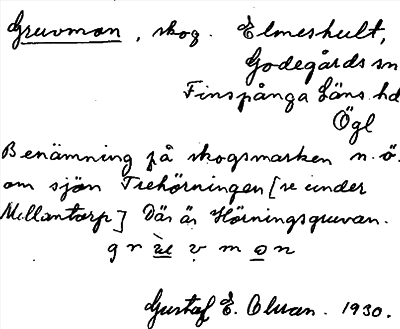 Gruvmon, skog. Elmeshult,
Godegårds sn
Finspånga läns hd
Ögl
Benämning på skogsmarken n.ö.
om sjön Trehörningen [se under
Mellantorp] Där är Hörningsgruvan.
Gustaf E. Olsson. 1930.